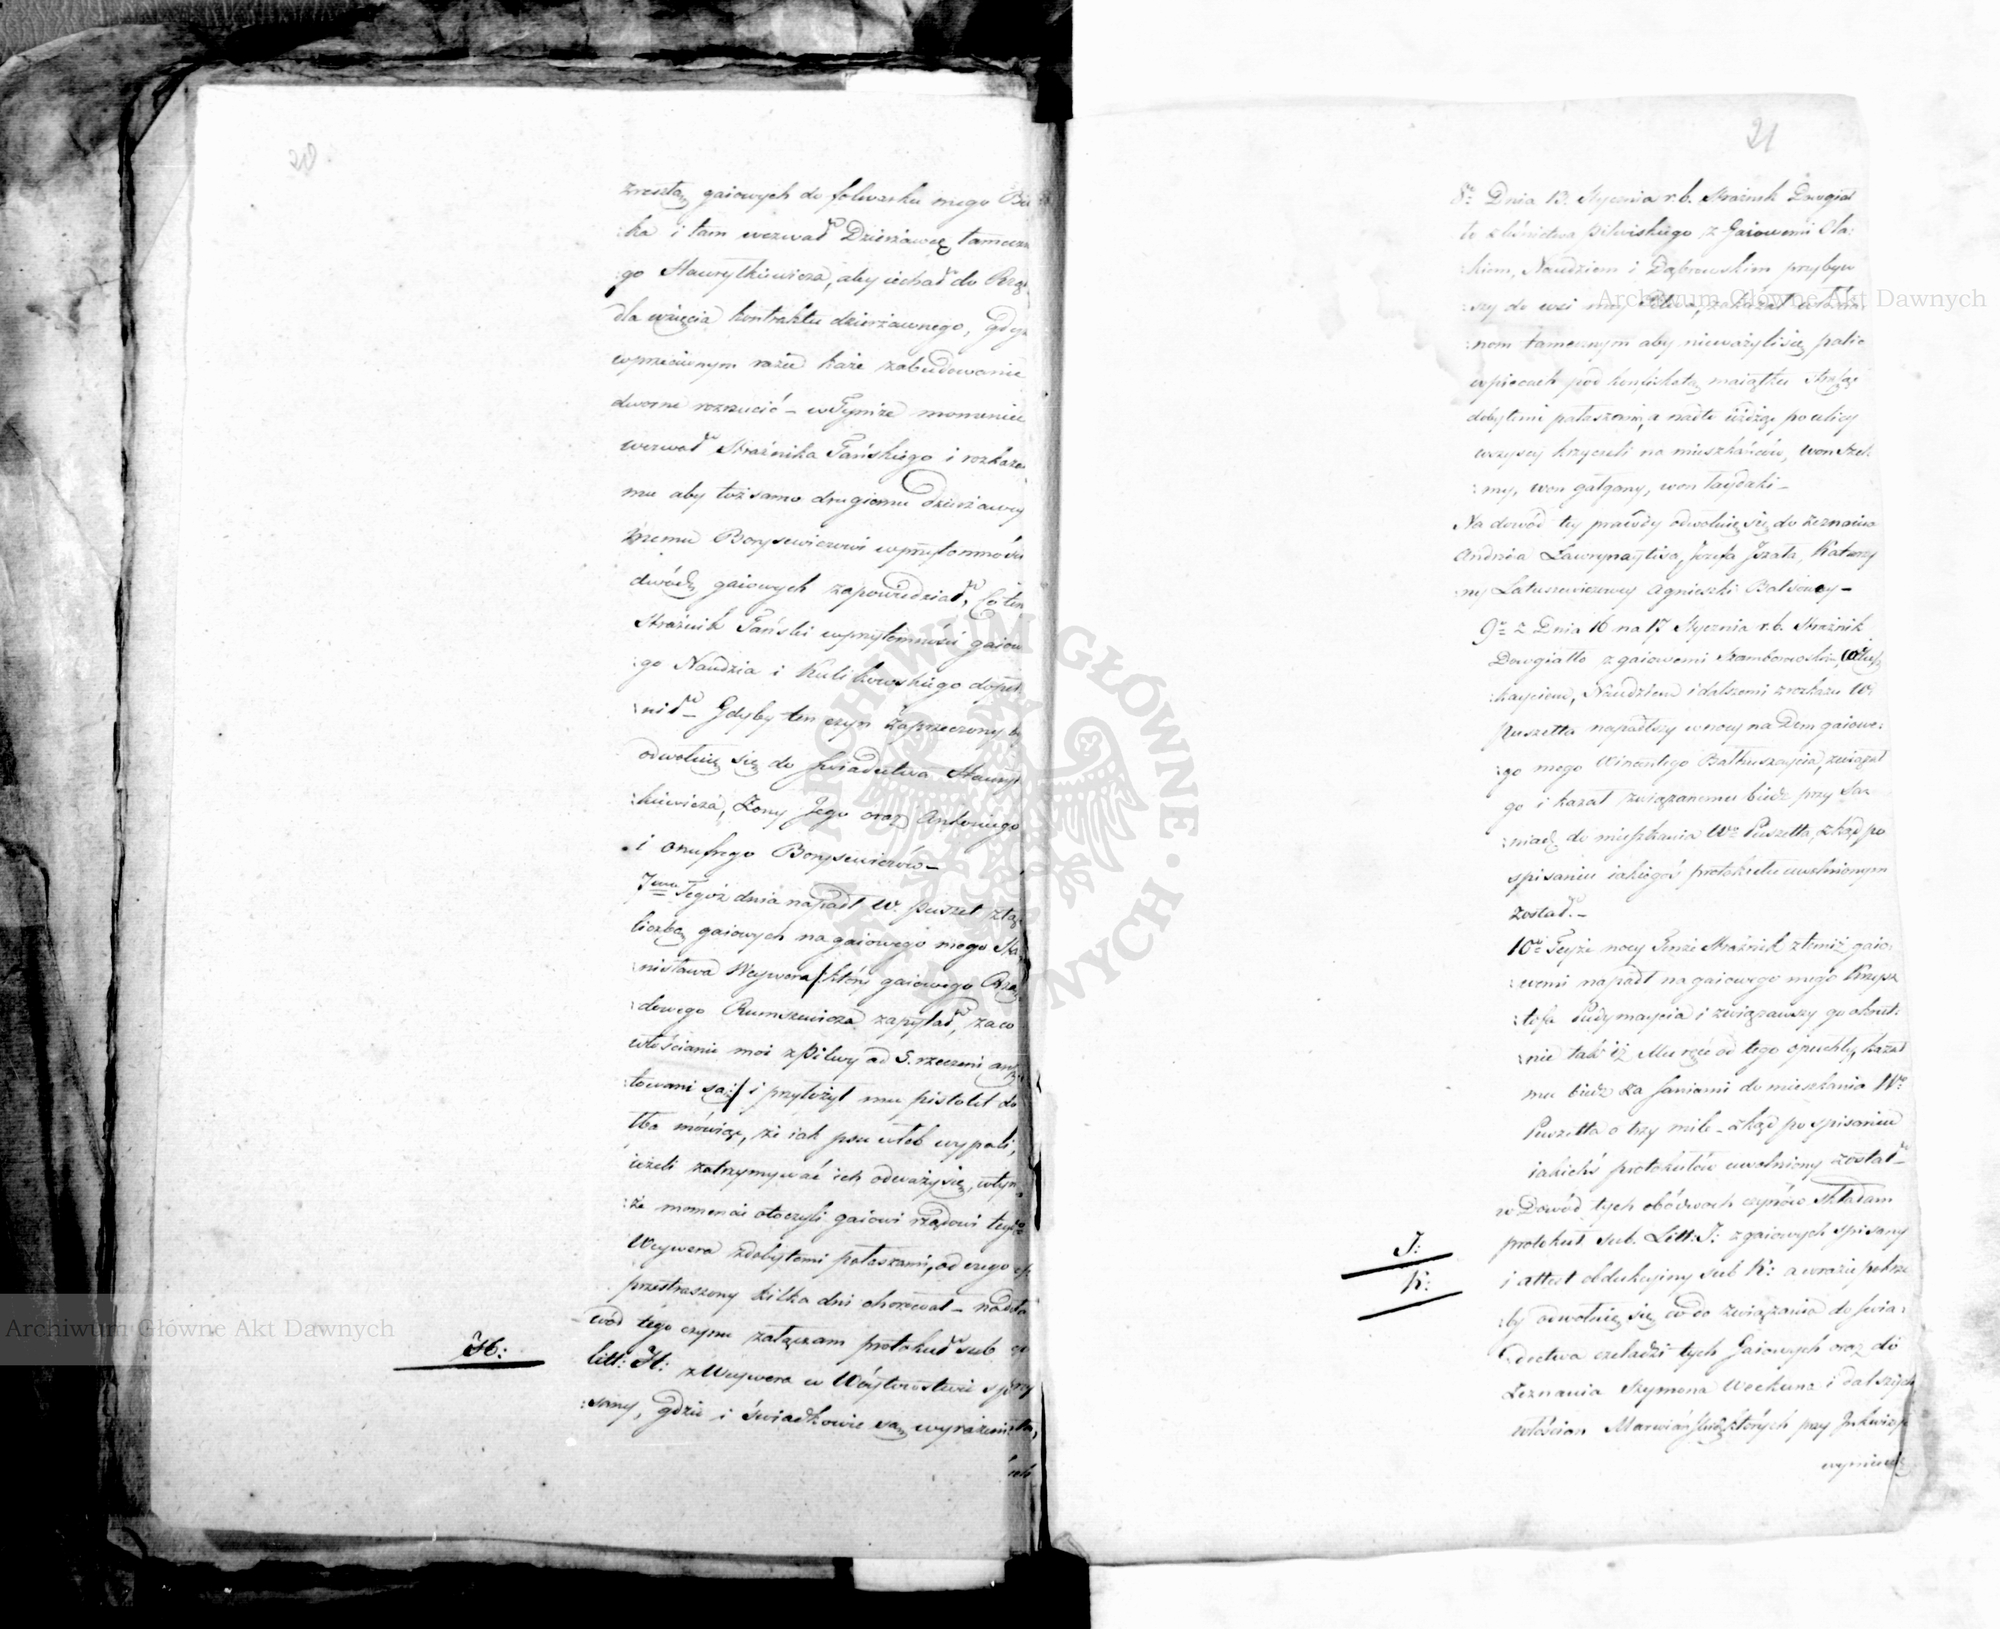 20
zresztą gaiowych do folwarku mego Bir
:ka i tam wezwał Dzierżawcę tameczn
:go Hawrytkiewicza, aby iechał do
dla wzięcia kontraktu dzierżawnego, gdyż
wprzeciwnym razie każe zabudowanie
dworne rozrzucić – w Tymże momencie
wezwał Strażnika Tańskiego i rozkazał
mu aby toż samo drugiemu dzierżawcy
Borysewiczowi wprzytomności
dwóch gaiowych zapowiedział, Co ten
Strażnik Tański wprzytomności gaiow
:go Naudzia i Kulikowskiego dopeł
:nił – Gdyby ten czyn zaprzeczony b
odwołuię się do świadectwa Hawryt
:kiewicza, Żony Jego oraz Antoniego
i Onufrego Borysewiczów –
7mo Tegoż dnia napadł W. Puszet z tą
liczbą gaiowych na gaiowego mego Sta
:nisława Weywera/: który gaiowego Rzą
:dowego Rumszewicza zapytał, za co
włościanie moi z Pilwy ad 5. rzeczeni
:towani są:/ i przyłożył mu pistolet do
łba mówiąc, że iak psu w łeb wypali,
ieżeli zatrzymywać ich odważy się, w tym
:że momencie otoczyli gaiowi rządowi tegoż
Weywera zdobytemi pałaszami, od czego
przestraszony kilka dni chorował – na do
:wód tego czynu załączam protokuł sub
H:
litt: H: z Weywera w Wóytowstwie spi
:sany, gdzie i świadkowie są wyrażeni
21
8o Dnia 13. Stycznia r.b. Strażnik Dowgiał
:ło z leśnictwa Pilwiskiego z Gaiowemi Ola:
:kiem, Naudziem i Dąbrowskim przybyw
:szy do wsi mey zakazał włościa
:nom tamecznym aby nieważyli się palić
wpiecach pod konfiskatą maiątku Strasząc
dobytemi pałaszami, a nadto ieżdżąc po ulicy
wszyscy krzyczeli na mieszkańców, won szel
:my, won gałgany, won łaydaki –
Na dowód tey prawdy odwołuię się do zeznania
Andrzeia Ławrynaytisa, Józefa Jszata, Katarzy
:ny Latuszewiczowey Agnieszki Balsiowey –
9o Z Dnia 16 na 17 Stycznia r.b. Strażnik
Dowgiałło z gaiowemi Szamborowskim,
Naudziem i dalszemi z rozkazu Wo
Puszetta napadłszy w nocy na Dom gaiowe:
:go mego Wincentego Bałtruszaycia, związał
go i kazał związanemu biedz przy Sa
:niach do mieszkania Wo Puszetta, zkąd po
spisaniu iakiegoś protokułu uwolnionym
został. –
10o Teyże nocy Tenże Strażnik z temiż gaio:
:wemi napadł na gaiowego mego Krzysz
:tofa Pudymaycia i związawszy go okrut:
:nie tak iż Mu ręce od tego opuchły, kazał
mu biedz za Saniami do mieszkania Wo
Puszetta o trzy mile – zkąd po spisaniu
iakichś protokułów uwolniony został –
w Dowód tych obódwoch czynów składam
J:
protokuł sub. Litt: J: z gaiowych spisany
K:
i attest obdukcyiny sub K: a wrazie potrze
:by odwołuię się co do związania do świa:
:dectwa czeladzi tych Gaiowych oraz do
Zeznania Szymona Wochuna i dalszych
włościan których przy Jnkwizy
wymieni